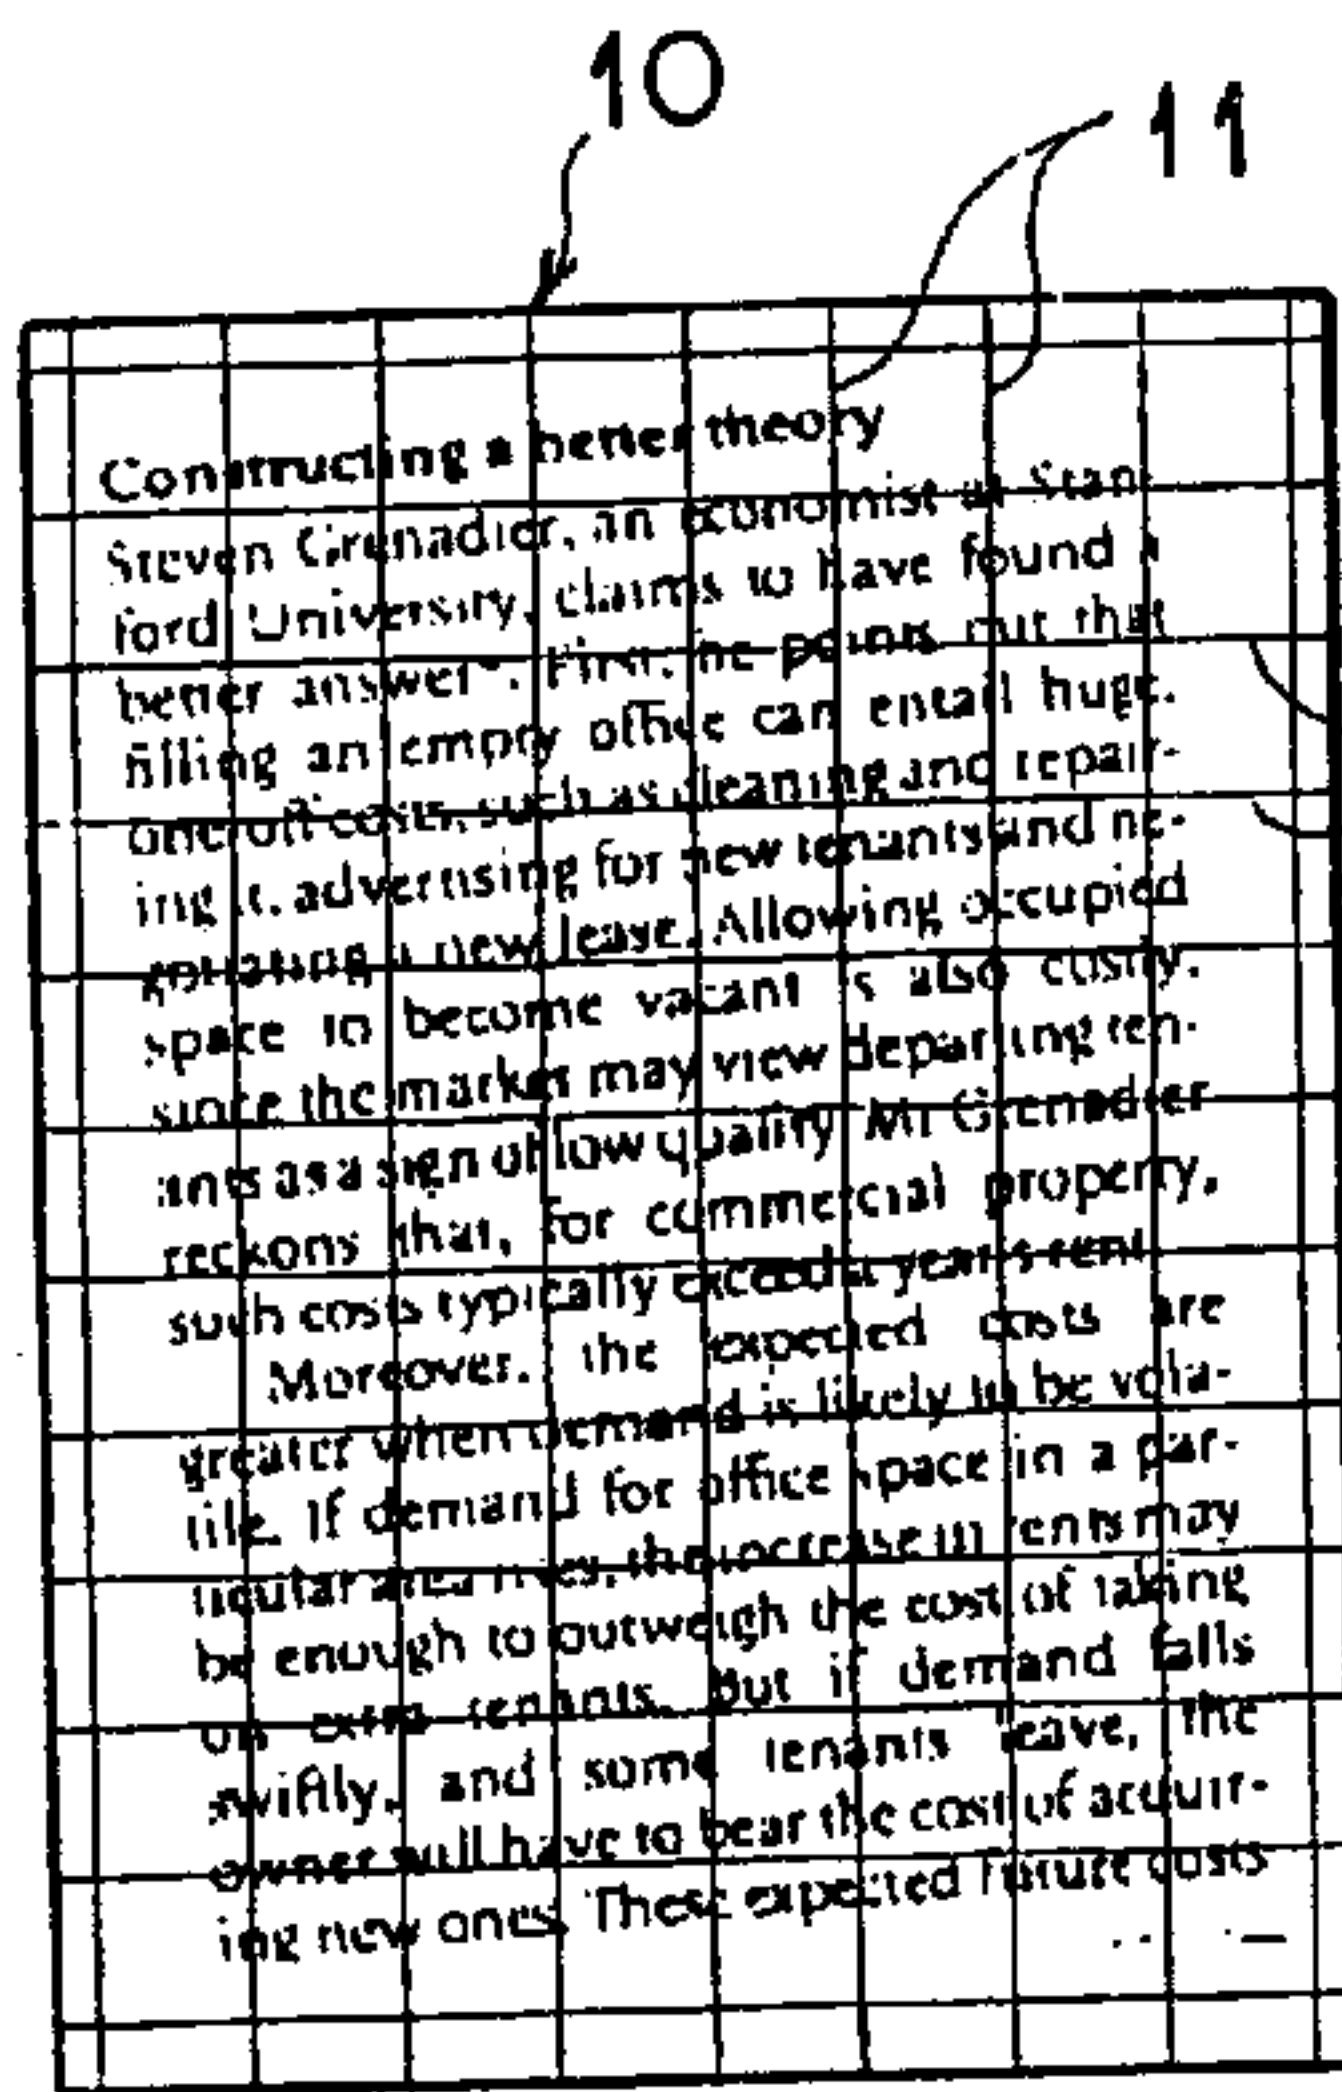 10
11
Constructing a better theory
Steven Grenadier, an economist at Stan-
ford University, claims to have found a
better answer*. First, he points out that
filling an empty office can entail huge,
one-off costs, such as cleaning and repair-
ing it, advertising for new tenants and ne-
gotiating a new lease. Allowing occupied
space to become vacant is also costly,
since the market may view departing ten-
ants as a sign of low quality Mr Grenadier
reckons that, for commercial property,
such costs typically exceed a year's rent
Moreover, the expected costs are
greater when demand is likely to be vola-
tile. If demand for office space in a par-
ticular area rises, the increase in rents may
be enough to outweigh the cost of taking
on extra tenants. But if demand falls
swiftly, and some tenants leave, the
owner will have to bear the cost of acquir-
ing new ones. These expected future costs